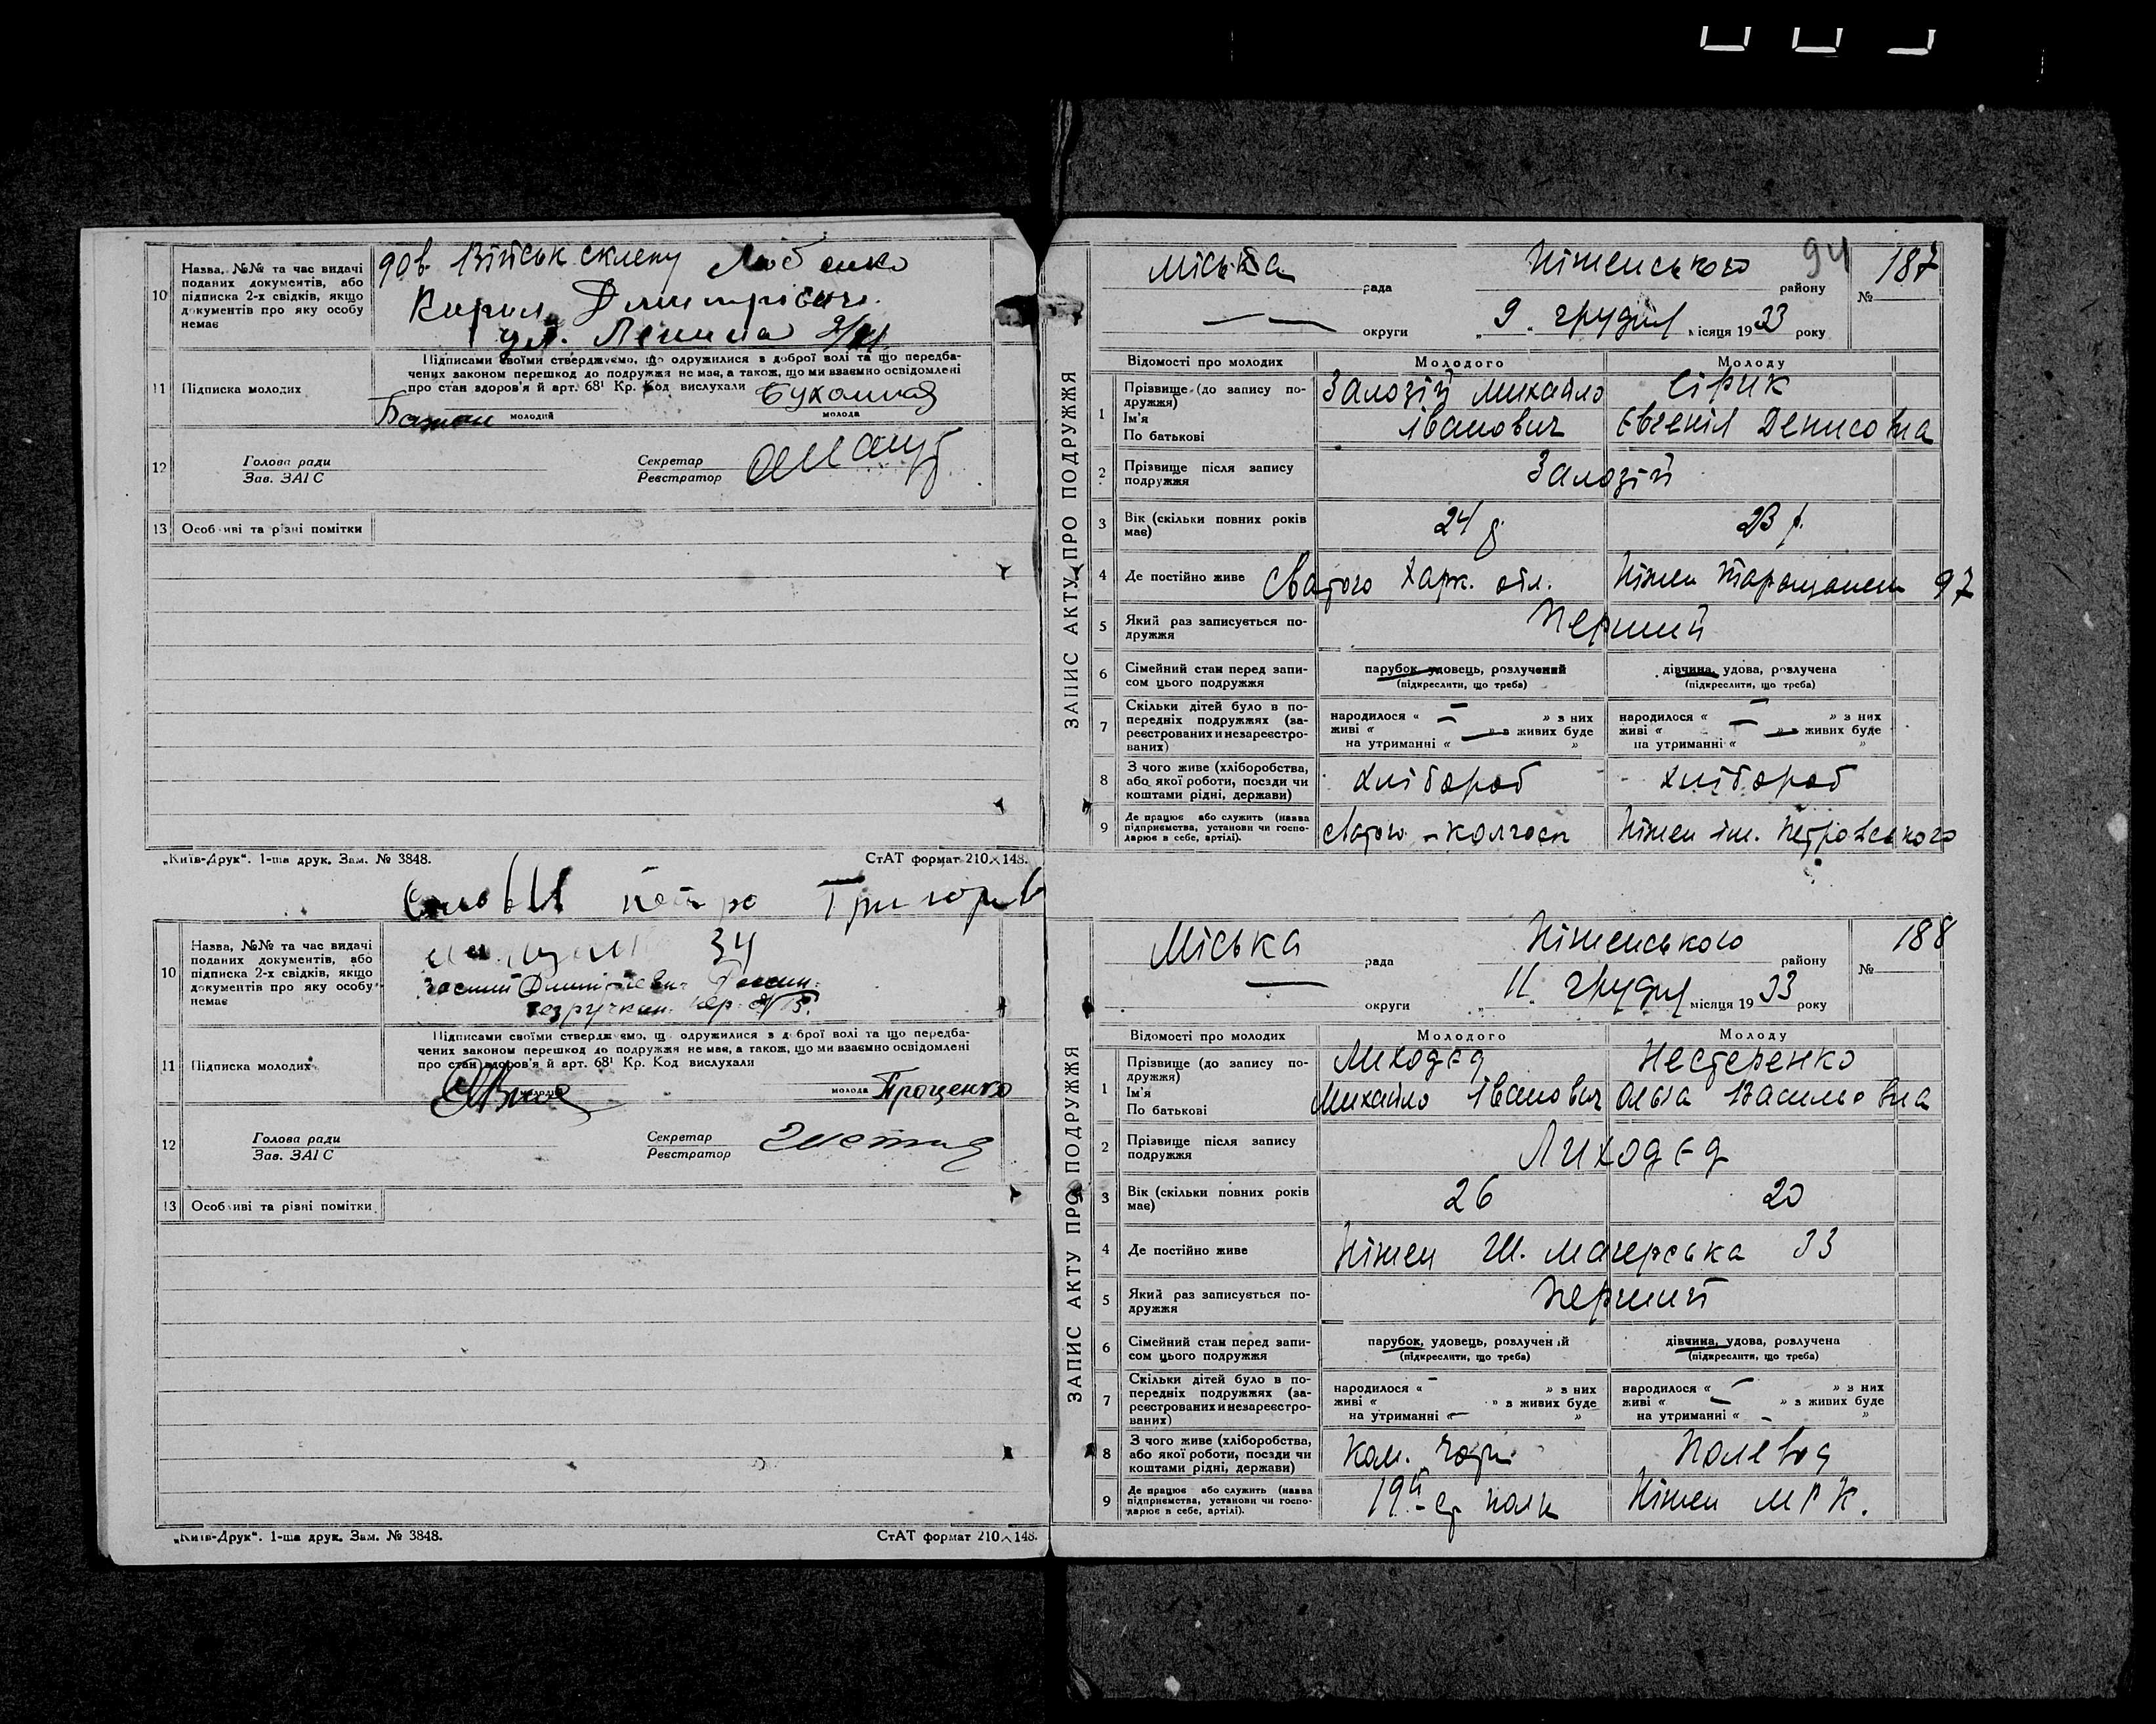 10 Назва, №№ та час видачі поданих документів, або підписка 2-х свідків, якщо документів про яку особу немає
Військ склепу
Кирил Димитрієвич
ул. Ленина
11 Підписка молодих
Підписами своїми стверджуємо, що одружилися з доброї волі та що передба-
чених законом перешкод до подружжя не має, а також, що ми взаємно освідомлені
про стан здоров'я й арт. 68¹ Кр. Код вислухали
молодий молода
12 Голова ради Секретар
Зав. ЗАГС Реєстратор
13 Особливі та різні помітки
„Київ-Друк“. 1-ша друк. Зам. № 3848. СтАТ формат 210×148.
Петро Григорів
10 Назва, №№ та час видачі поданих документів, або підписка 2-х свідків, якщо документів про яку особу немає
34
11 Підписка молодих
Підписами своїми стверджуємо, що одружилися з доброї волі та що передба-
чених законом перешкод до подружжя не має, а також, що ми взаємно освідомлені
про стан здоров'я й арт. 68¹ Кр. Код вислухали
молодий молода Проценко
12 Голова ради Секретар
Зав. ЗАГС Реєстратор
13 Особливі та різні помітки
„Київ-Друк“. 1-ша друк. Зам. № 3848. СтАТ формат 210×148.
94
ЗАПИС АКТУ ПРО ПОДРУЖЖЯ
Міська рада Ніженського району № 187
— — округи „9. грудня місяця 1933 року
Відомості про молодих Молодого Молоду
1 Прізвище (до запису подружжя) Ім'я По батькові
Залозій Михайло Сірик
Іванович Євгенія Денисовна
2 Прізвище після запису подружжя Залозій
3 Вік (скільки повних років має) 24 р. 23 р.
4 Де постійно живе Сватого Харк. обл. Ніжен Таращанськ 97
5 Який раз записується подружжя Перший
6 Сімейний стан перед записом цього подружжя парубок, удовець, розлучений дівчина, удова, розлучена
(підкреслити, що треба) (підкреслити, що треба)
7 Скільки дітей було в попередніх подружжях (зареєстрованих и незареєстрованих)
народилося « — » з них народилося « — » з них
живі « — » з живих буде живі « — » з живих буде
на утриманні « » на утриманні « »
8 З чого живе (хліборобства, або якої роботи, посади чи коштами рідні, держави) хлібороб хлібороб
9 Де працює або служить (назва підприємства, установи чи господарює в себе, артілі). Сватого - колгосп Ніжен ім. Петровського
ЗАПИС АКТУ ПРО ПОДРУЖЖЯ
Міська рада Ніженського району № 188
— округи „11. грудня місяця 1933 року
Відомості про молодих Молодого Молоду
1 Прізвище (до запису подружжя) Ім'я По батькові
Лиходєд Нестеренко
Михайло Іванович Ольга Васильовна
2 Прізвище після запису подружжя Лиходєд
3 Вік (скільки повних років має) 26 20
4 Де постійно живе Ніжен Ш. Магерська 33
5 Який раз записується подружжя Перший
6 Сімейний стан перед записом цього подружжя парубок, удовець, розлучений дівчина, удова, розлучена
(підкреслити, що треба) (підкреслити, що треба)
7 Скільки дітей було в попередніх подружжях (зареєстрованих и незареєстрованих)
народилося « — » з них народилося « — » з них
живі « » з живих буде живі « — » з живих буде
на утриманні « — » на утриманні « - »
8 З чого живе (хліборобства, або якої роботи, посади чи коштами рідні, держави) Ком. Полевод
9 Де працює або служить (назва підприємства, установи чи господарює в себе, артілі). 19й полк Ніжен М Р К.